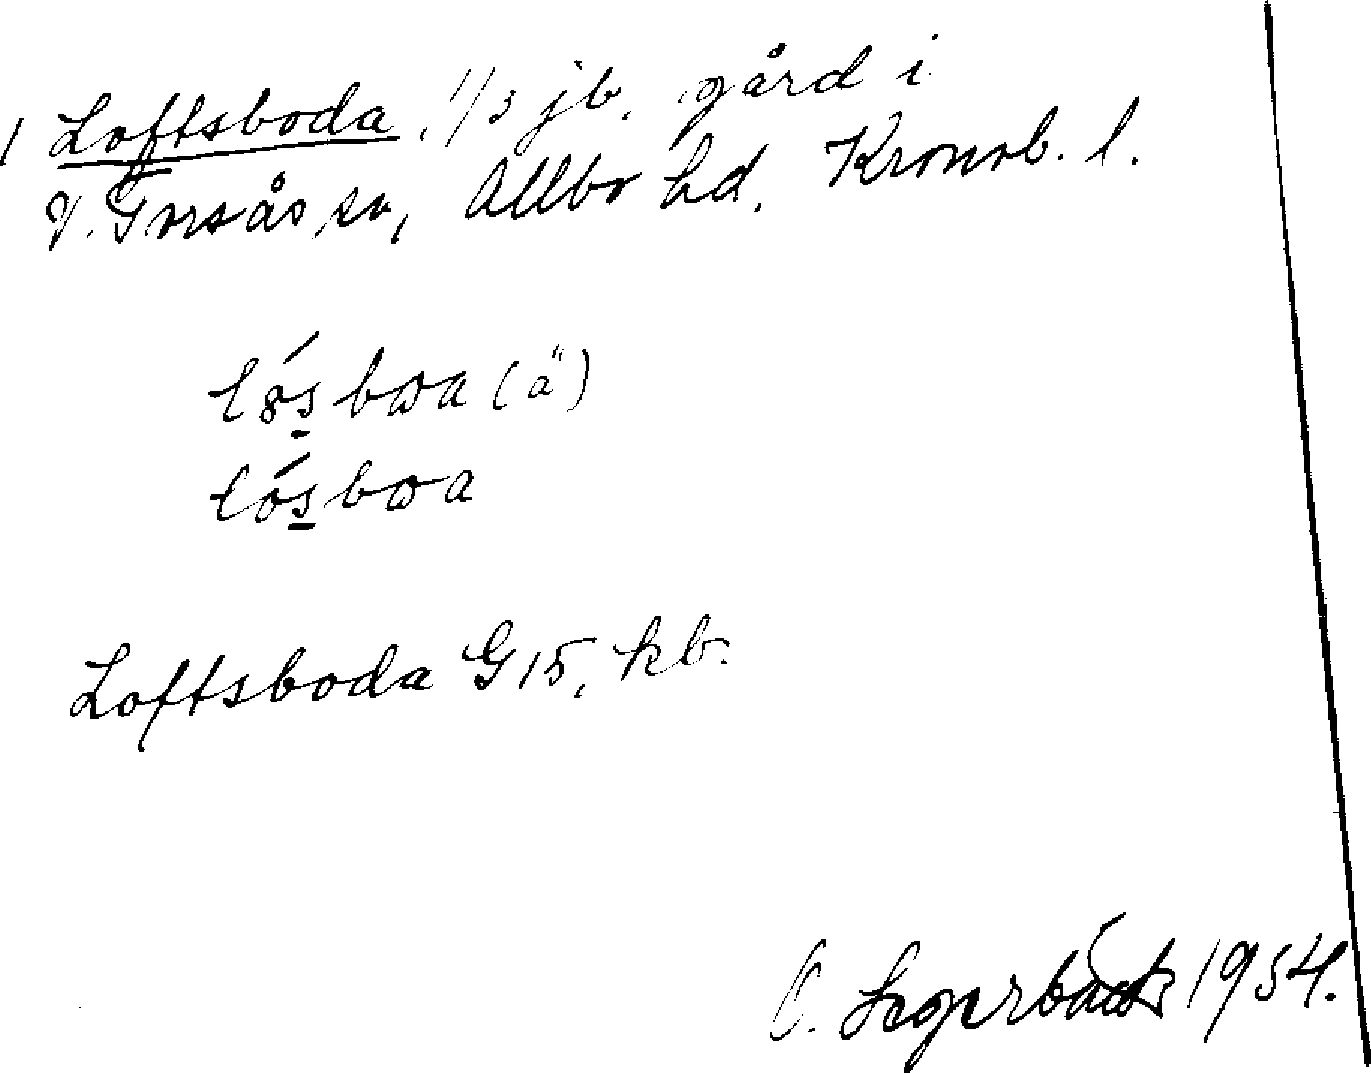 Loftsboda, 1/3 jb. gård i
V. Torsås sn, Allbo hd, Kronob. l.
lósbωa (ä)
lósbωa
Loftsboda G 15, kb.
1954.